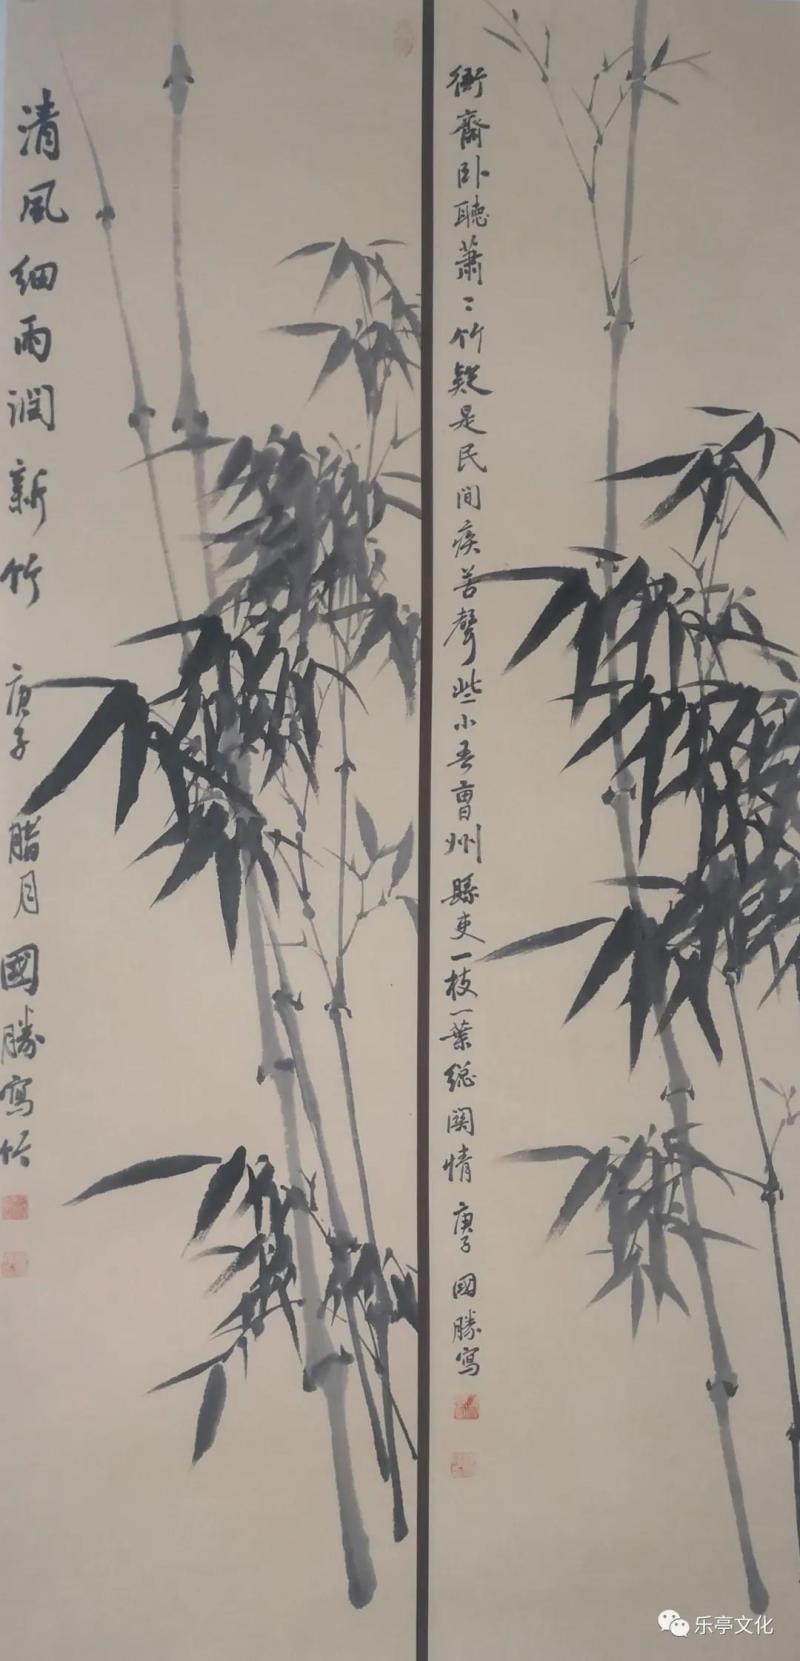 清風細雨潤新竹 庚子 腊月 國勝寫竹
衙齋卧聽蕭〻竹疑是民間疾苦聲些小吾曹州縣吏一枝一葉總関情 庚子 國勝寫
乐亭文化